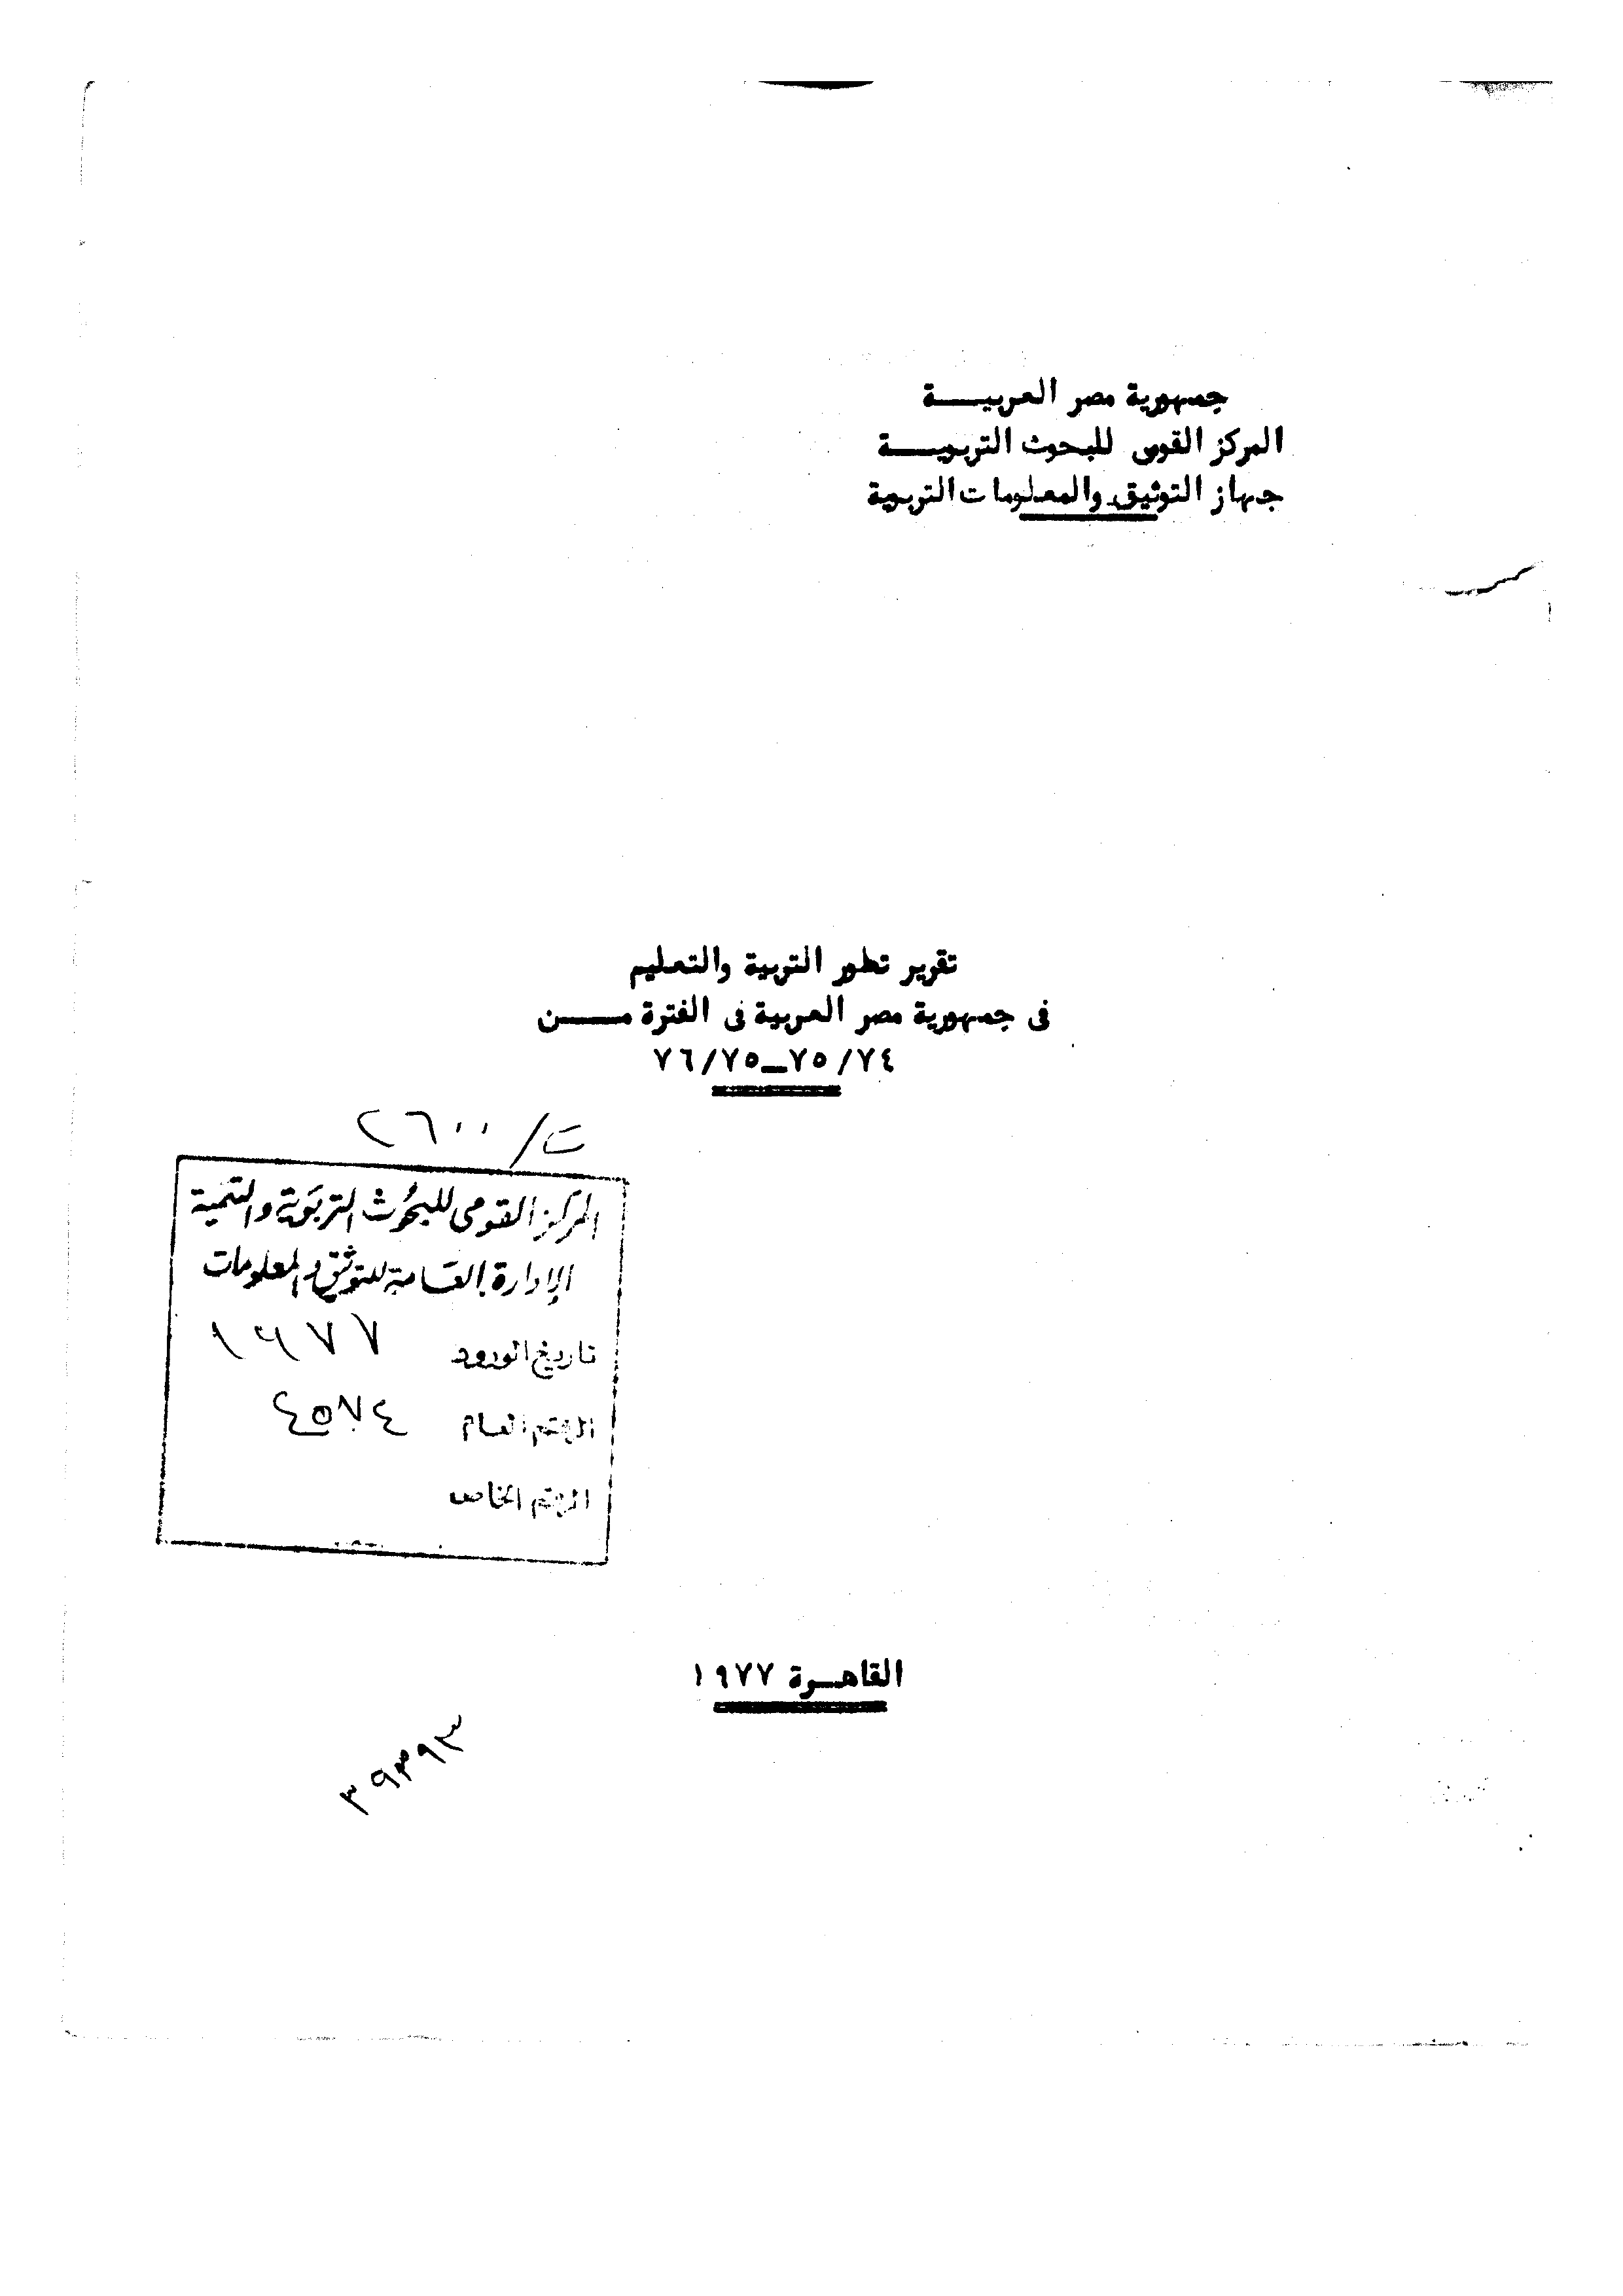 جمهورية مصر العربيـــة
المركز القومى للبحوث التربويـــة
جهاز التوثيق والمعلومات التربوية
تقرير تطور التربية والتعليم
فى جمهورية مصر العربية فى الفترة مــــن
٧٥/٧٤ــ٧٦/٧٥
ت/٢٦٠٠
المركز القومى للبحوث التربوية والتنمية
الإدارة العامة للتوثيق والمعلومات
تاريخ الورود ١٩٧٧
الرقم العام
الرقم الخاص
القاهــرة ١٩٧٧
٣٩٣٩٣